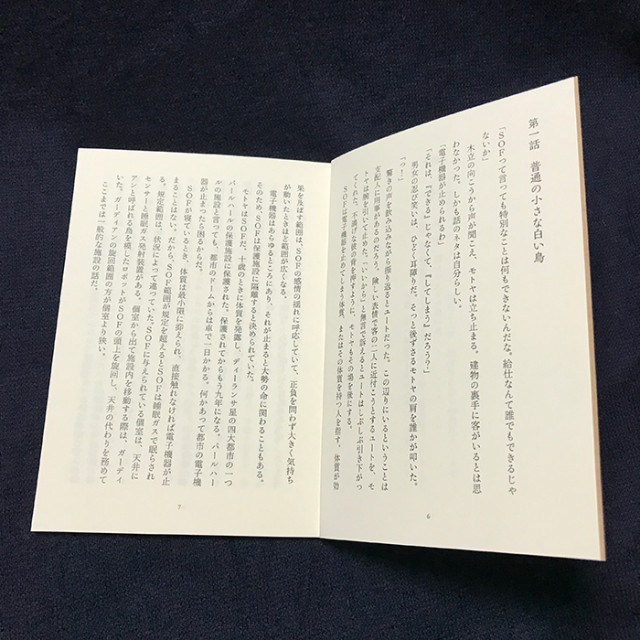 第一話　普通の小さな白い鳥
「SOFって言っても特別なことは何もできないんだな。給仕なんて誰でもできるじゃ
ないか」
木立の向こうから声が聞こえ、モトヤは立ち止まる。建物の裏手に客がいるとは思
わなかった。しかも話のネタは自分らしい。
「電子機器が止められるわ」
「それは、『できる』じゃなくて、『してしまう』だろう？」
男女の忍び笑いは、ひどく耳障りだ。そっと後ずさるモトヤの肩を誰かが叩いた。
「っ！」
驚きの声を飲み込みながら振り返るとユートだった。この辺りにいるということは、
モトヤは
SOFは電子機器を止めてしまう体質、またはその体質を持つ人を指す。体質が効
6
果を及ぼす範囲は、SOFの感情の揺れに呼応していて、正負を問わず大きく気持ち
が動いたときほど範囲が広くなる。
電子機器はあらゆるところにあり、それが止まると大勢の命に関わることもある。
そのため、SOFは保護施設に隔離すると決められていた。
モトヤはSOFだ。十歳のときに体質を発露し、ディーランサ星の四大都市の一つ
パールハールの保護施設に保護された。保護されてからもう九年になる。パールハー
ルの施設と言っても、都市のドームからは車で一日かかる。何かあって都市の電子機
器が止まったら困るからだ。
SOFが寝ているとき、体質は最小限に抑えられ、直接触れなければ電子機器が止
まることはない。だから、SOF範囲が規定を超えるとSOFは睡眠ガスで眠らされ
る。規定範囲は、状況によって違っていた。SOFに与えられている個室は、天井に
センサーと睡眠ガス放射装置がある。個室から出て施設内を移動する際は、ガーディ
アンと呼ばれる鳥を模したロボットがSOFの頭上を旋回し、天井の代わりを務めて
いた。ガーディアンの旋回範囲の方が個室より狭い。
ここまでは一般的な施設の話だ。
7